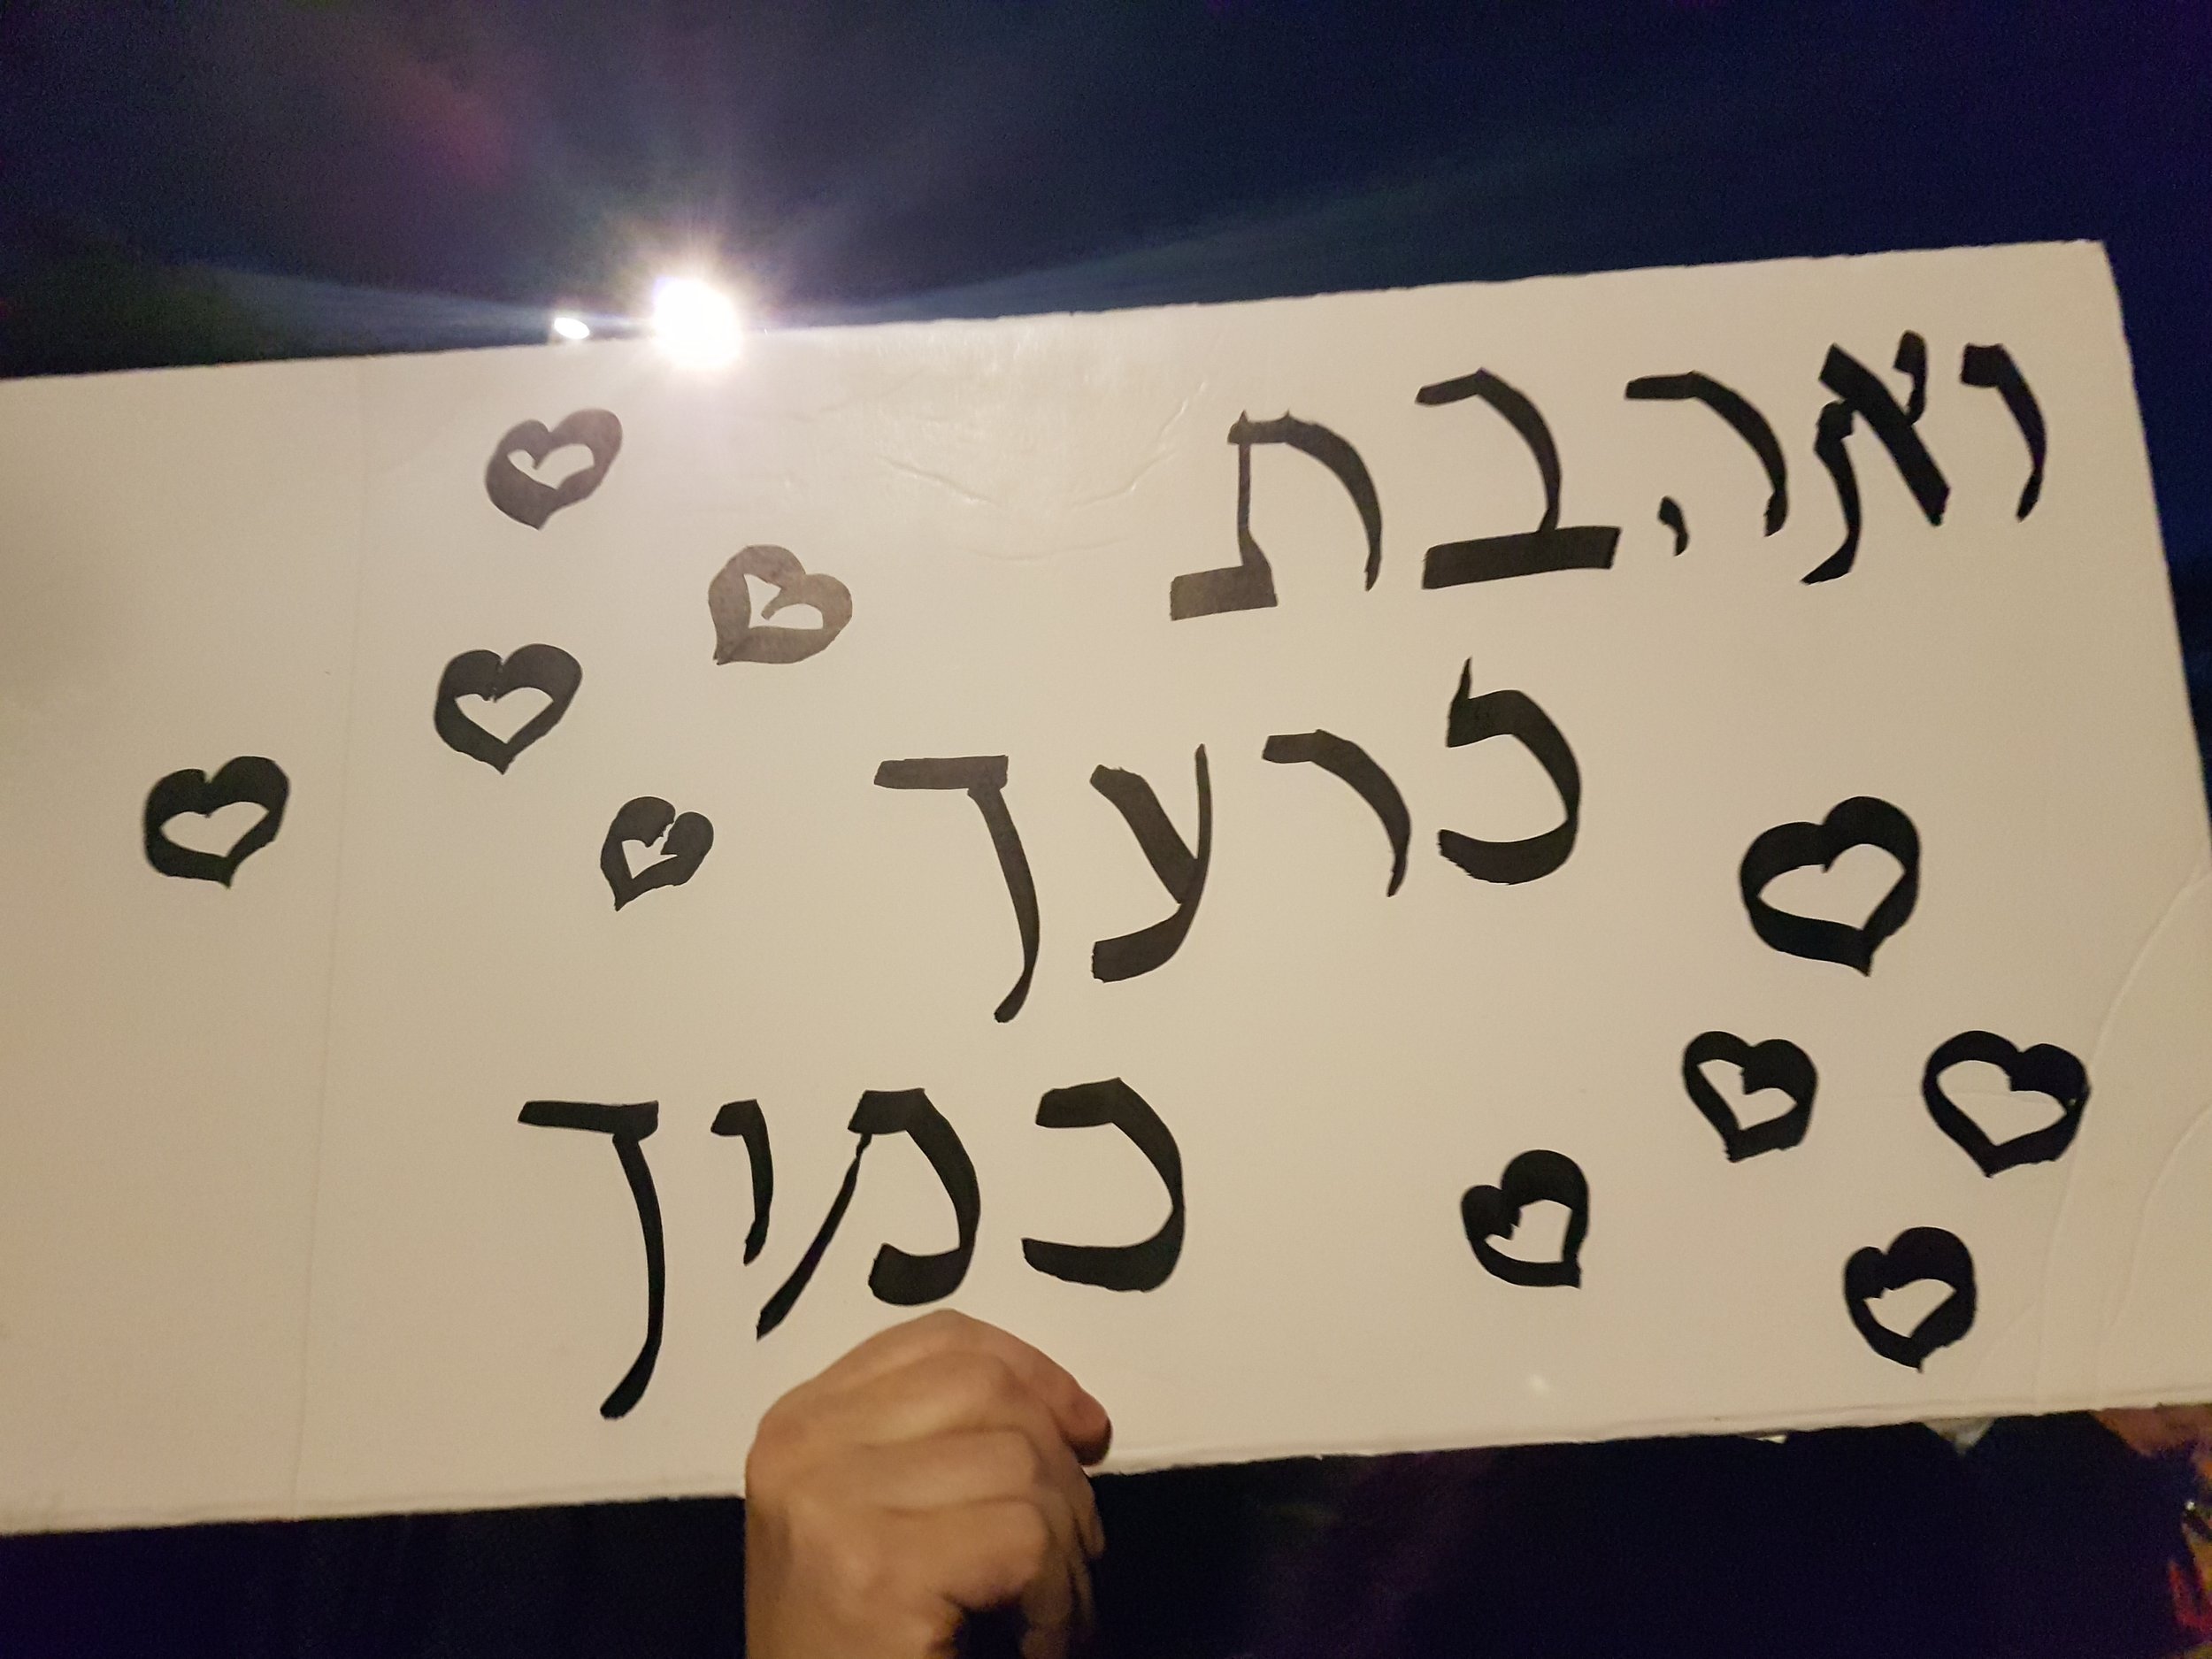 ואהבת
לרעך
כמוך